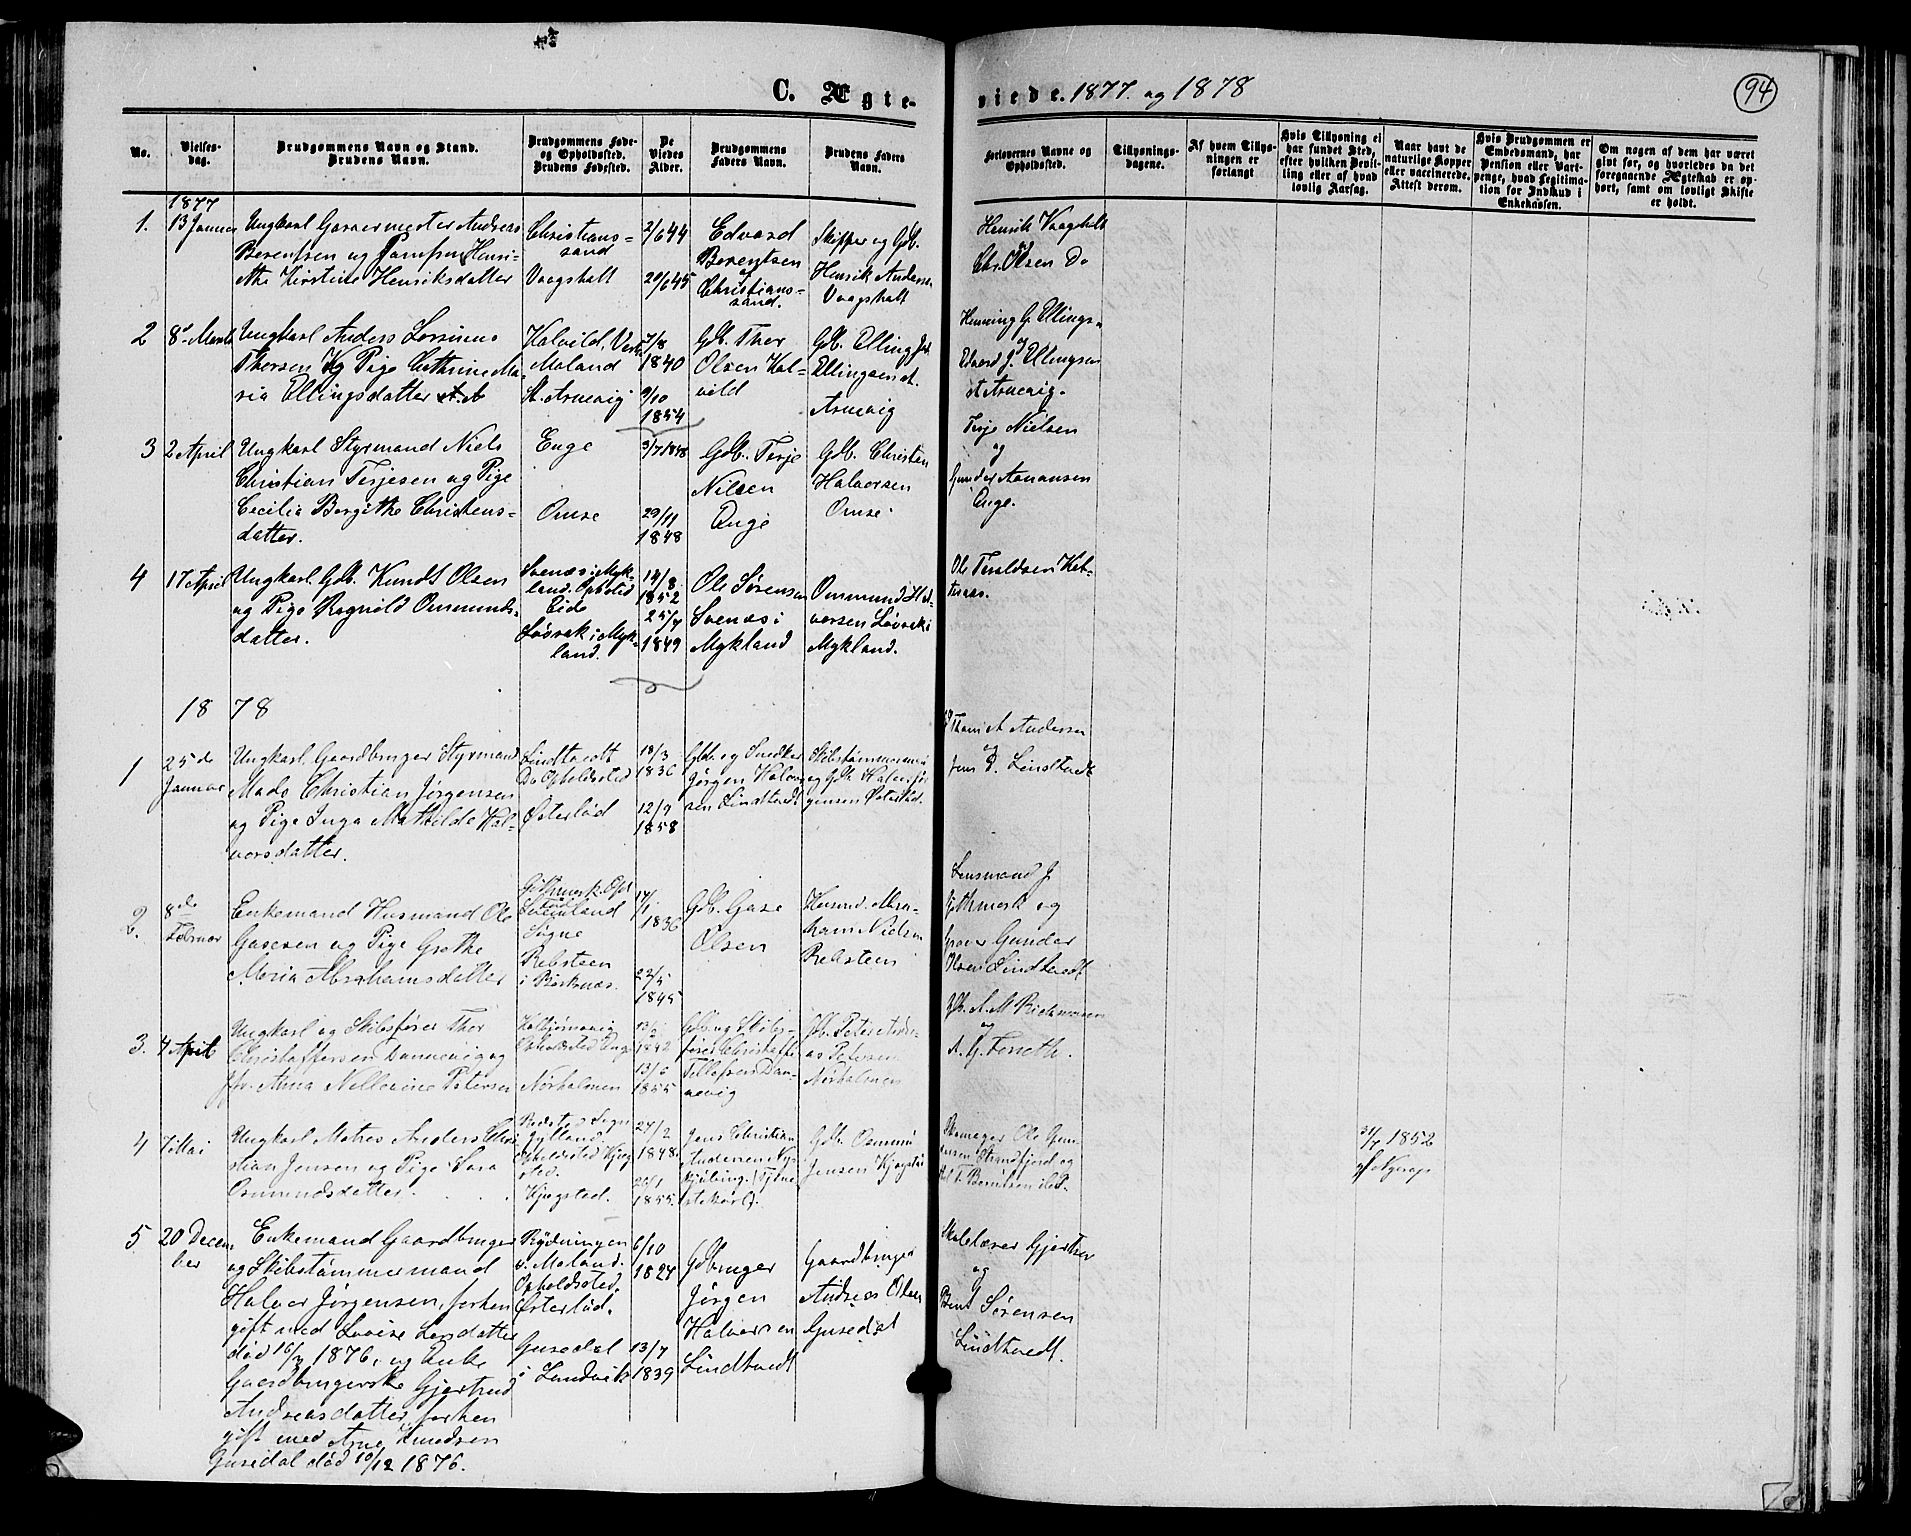 C. Ægte-
viede. 1877. og 1878
94
No.
Vielses-
dag.
Brudgommens Navn og Stand.
Brudens Navn.
Brudgommens Føde-
og Opholdssted.
Brudens Fødested.
De
Viedes
Alder.
Brudgommens
Faders Navn.
Brudens Faders
Navn.
Forlovernes Navne og
Opholdssted.
Tillysnings-
dagene.
Af hvem Tillys-
ningen er
forlangt
Hvis Tillysning ei
har fundet Sted,
efter hvilken Bevil-
ling eller af hvad
lovlig Aarsag.
Naar havt de
naturlige Kopper
eller vaccinerede.
Attest derom.
Hvis Brudgommen er
Embedsmand, har
Pension eller Vart-
penge, hvad Legitima-
tion for Indskud i
Enkekassen.
Om nogen af dem har været
gift før, og hvorledes da det
foregaaende Ægteskab er op-
hørt, samt om lovligt Skifte
er holdt.
1877
1.
13 Januar
Ungkarl Garvermester Andreas
Berentsen og Jomfru Henri-
ette Kirstine Henriksdatter
Christians-
sand
Vaagsholt
2/6 44
20/6 45
Edvard
Berentsen
af
Christians-
sand.
Skipper og Gdb.
Henrik Anders
Vaagsholt
Henrik Vaagsholt
og
Chr. Olsen Do
2
8de Marts
Ungkarl Anders
Thorsen og Pige Cathrine Ma-
ria Ellingsdatter
Kalvild, Vestre
Moland
St. Arnevig
7/8
1840
9/10
1854
Gdb. Thor
Olsen Kal-
vild
Gdb. Elling
Ellingsen St.
Arnevig
Henning G. Ellings-
og
Edvard J. Ellingsen
St Arnevig.
3
2 April
Ungkarl Styrmand Niels
Christian Terjesen og Pige
Cecilia Bergithe Christens-
datter.
Enge
Omse
3/7 1848
29/11
1848
Gdb. Terje
Nilsen
Enge
Gdb. Christen
Halvorsen
Omse
Terje Nielsen
og
Gunder Aanansen
Enge.
4
17 April
Ungkarl Gdb. Kundt Olsen
og Pige Ragnild Ommunds-
datter.
Svenæs i Myk-
land. Opholdssted
Eide
Løvrak i Myk-
land.
14/8
1852
25/7
1849
Ole Sørensen
Svenæs i
Mykland
Ommund Hal-
vorsen Løvrak i
Mykland.
Ole Teraldsen Ket-
teraas.
1878
1
25de
Januar
Ungkarl, Gaardbruger Styrmand
Mads Christian Jørgensen
og Pige Inga Mathilde Hal-
vorsdatter.
Lindtvedt
Do Opholdssted
Østerlød
18/3
1836
12/9
1858
Gdb. og Snedker
Jørgen Halvor-
sen Lindtvedt
Skibstømmermand
og Gdb. Halvor Jør-
gensen Østerlød.
Thom A Andersen
og
Jens P. Lindtvedt
2.
8de
Februar
Enkemand Husmand Ole
Gasesen og Pige Grethe
Maria Abrahamsdatter
Søgne
Rebsteen
i Birkenæs.
17/1
1836
22/5
1845
Gdb. Gase
Olsen
Husmd. Abra-
ham Nielsen
Rebsteen
Lensmand J.
Gothmork og
Gunder
Olsen Lindtvedt
3.
4 April
Ungkarl og Skibsfører Thor
Christoffersen Dannevig og
Jfr. Anna Nellevine Petersen
Kalbjørnsvig
Opholdssted Enge
Nørholmen
1842
13/6
1855
Gdb. og Skibs-
fører Christoffer
Tellefsen Dan-
nevig
Gdb. Peter Andre-
as Petersen
Nørholmen
Gdb. A. M Richmann
og
A. G. Fineth.
4
7 Mai
Ungkarl Matros Anders Chri-
stian Jensen og Pige Sara
Osmundsdatter.
Jylland.
Opholdssted Kjeg-
stad.
Kjegstad.
27/2
1848.
20/1
1855
Jens Christian
Andersen Ny-
kjøbing. (Tjene-
stekarl).
Gdb. Osmun
Jensen Kjegstad
Ole Gun-
Strandfjord og
31/7 1852
af Nyerup
5
20 Decem-
ber
Enkemand Gaardbruger
og Skibstømmermand
Halvor Jørgensen, forhen
gift med Lovise Larsdatter
død 16/2 1876, og Enke
Gaardbrugerske Gjertrud
Andreasdatter, forhen
gift med Arne Knudsen
Gusedal død 10/12 1876.
Rydningen
v. Moland.
Opholdssted.
Østerlød.
Gusedal
i Landvik
6/10
1827
13/7
1839
Gdbruger
Jørgen
Halvorsen
Lindtvedt
Gaardbruger
Andreas Olsen
Gusedal
Skolelærer Gjertsen
og
Bent Sørensen
Lindtvedt.